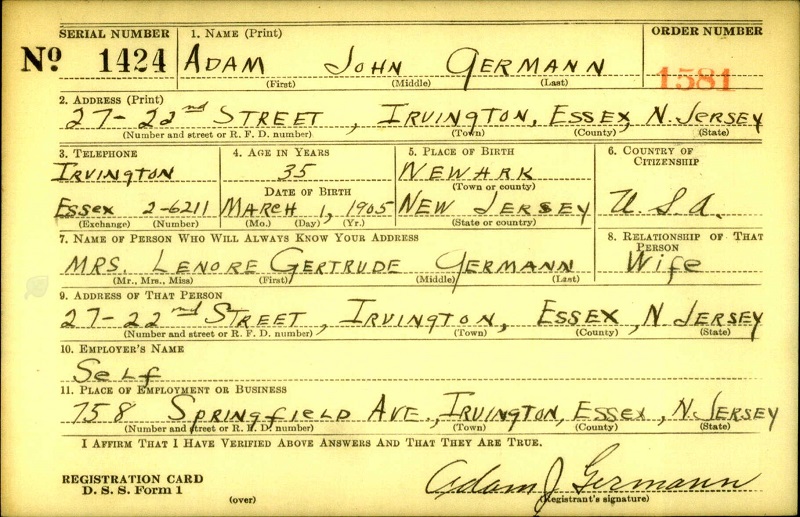 SERIAL NUMBER 1. NAME (Print) ORDER NUMBER
No 1424 ADAM JOHN GERMANN 1581
(First) (Middle) (Last)
2. ADDRESS (Print)
27-22nd STREET, IRVINGTON, ESSEX, N. JERSEY
(Number and street or R. F. D. number) (Town) (County) (State)
3. TELEPHONE 4. AGE IN YEARS 5. PLACE OF BIRTH 6. COUNTRY OF CITIZENSHIP
IRVINGTON 35 NEWARK
DATE OF BIRTH (Town or county)
ESSEX 2-6211 MARCH 1, 1905 NEW JERSEY U.S.A.
(Exchange) (Number) (Mo.) (Day) (Yr.) (State or country)
7. NAME OF PERSON WHO WILL ALWAYS KNOW YOUR ADDRESS 8. RELATIONSHIP OF THAT PERSON
MRS. LENORE GERTRUDE GERMANN Wife
(Mr., Mrs., Miss) (First) (Middle) (Last)
9. ADDRESS OF THAT PERSON
27-22nd STREET, IRVINGTON, ESSEX, N JERSEY
(Number and street or R. F. D. number) (Town) (County) (State)
10. EMPLOYER'S NAME
Self
11. PLACE OF EMPLOYMENT OR BUSINESS
758 SPRINGFIELD AVE., IRVINGTON, ESSEX, N. JERSEY
(Number and street or R. F. D. number) (Town) (County) (State)
I AFFIRM THAT I HAVE VERIFIED ABOVE ANSWERS AND THAT THEY ARE TRUE.
REGISTRATION CARD
D. S. S. Form 1 Adam J Germann
(over) (Registrant's signature)